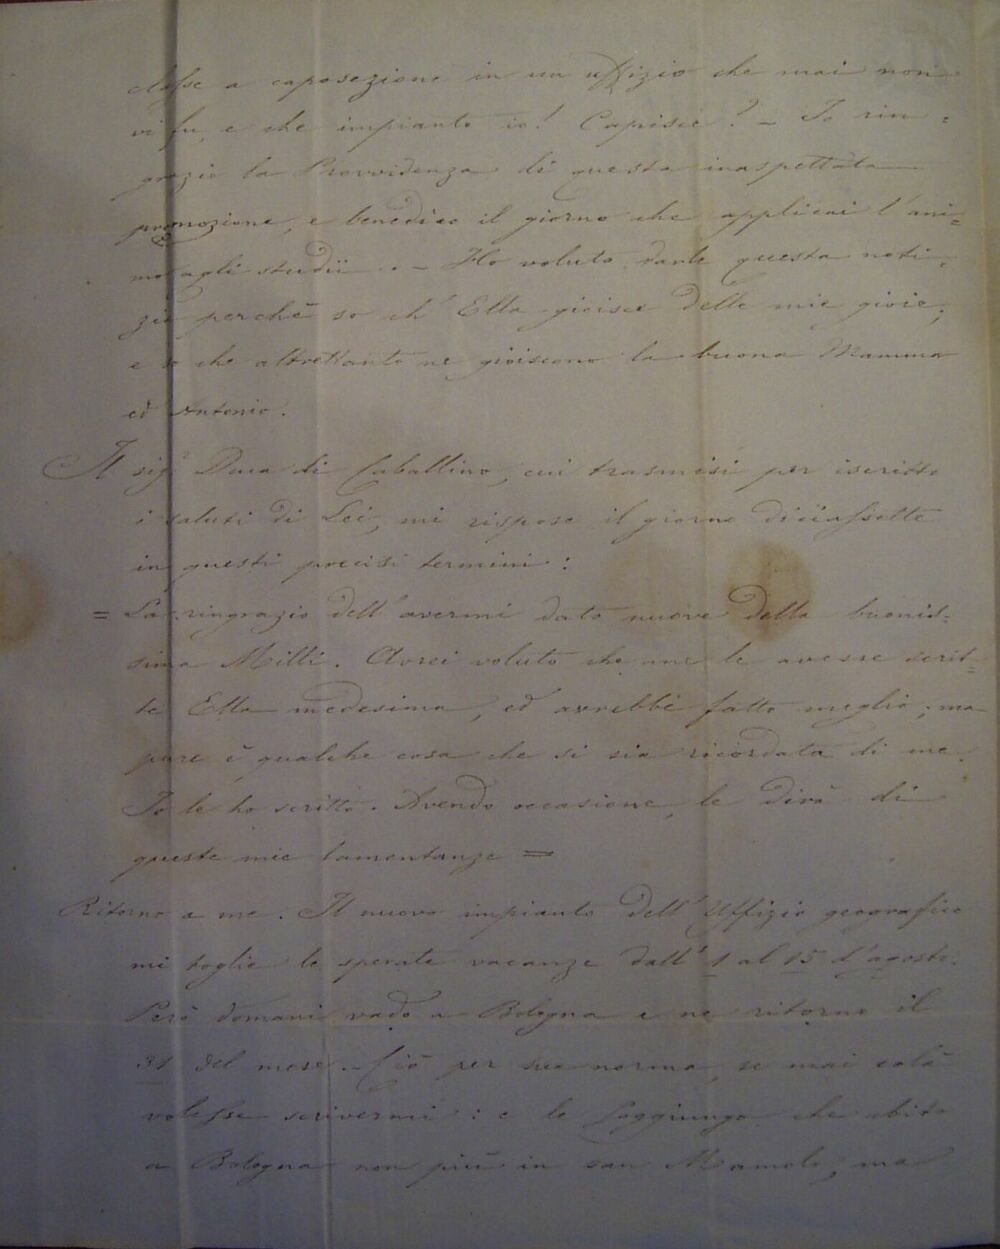 classe a caposezione in un uffizio che mai non
vi fu, e che impianto io! Capisce? — Io rin=
grazio la Provvidenza di questa inaspettata
promozione, e benedico il giorno che applicai l'ani=
mo agli studii. — Ho voluto darle questa noti=
zia perchè so ch' Ella gioisce delle mie gioie;
e so che altrettanto ne gioiscono la buona Mamma
ed Antonio.
Il sigr Duca di Caballino, cui trasmisi per iscritto
i saluti di Lei, mi rispose il giorno diciassette
in questi precisi termini:
= La ringrazio dell'avermi dato nuove della buonis=
sima Milli. Avrei voluto che me le avesse scrit=
te Ella medesima, ed avrebbe fatto meglio; ma
pure è qualche cosa che si sia ricordata di me.
Io le ho scritto. Avendo occasione, le dirà di
queste mie lamentanze =
Ritorno a me. Il nuovo impianto dell' Uffizio geografico
mi toglie le sperate vacanze dall' 1 al 15 d'agosto.
Però domani vado a Bologna e ne ritorno il
31 del mese. — Ciò per sua norma, se mai colà
volesse scrivermi: e le soggiungo che abito
a Bologna non più in san Mamolo, ma